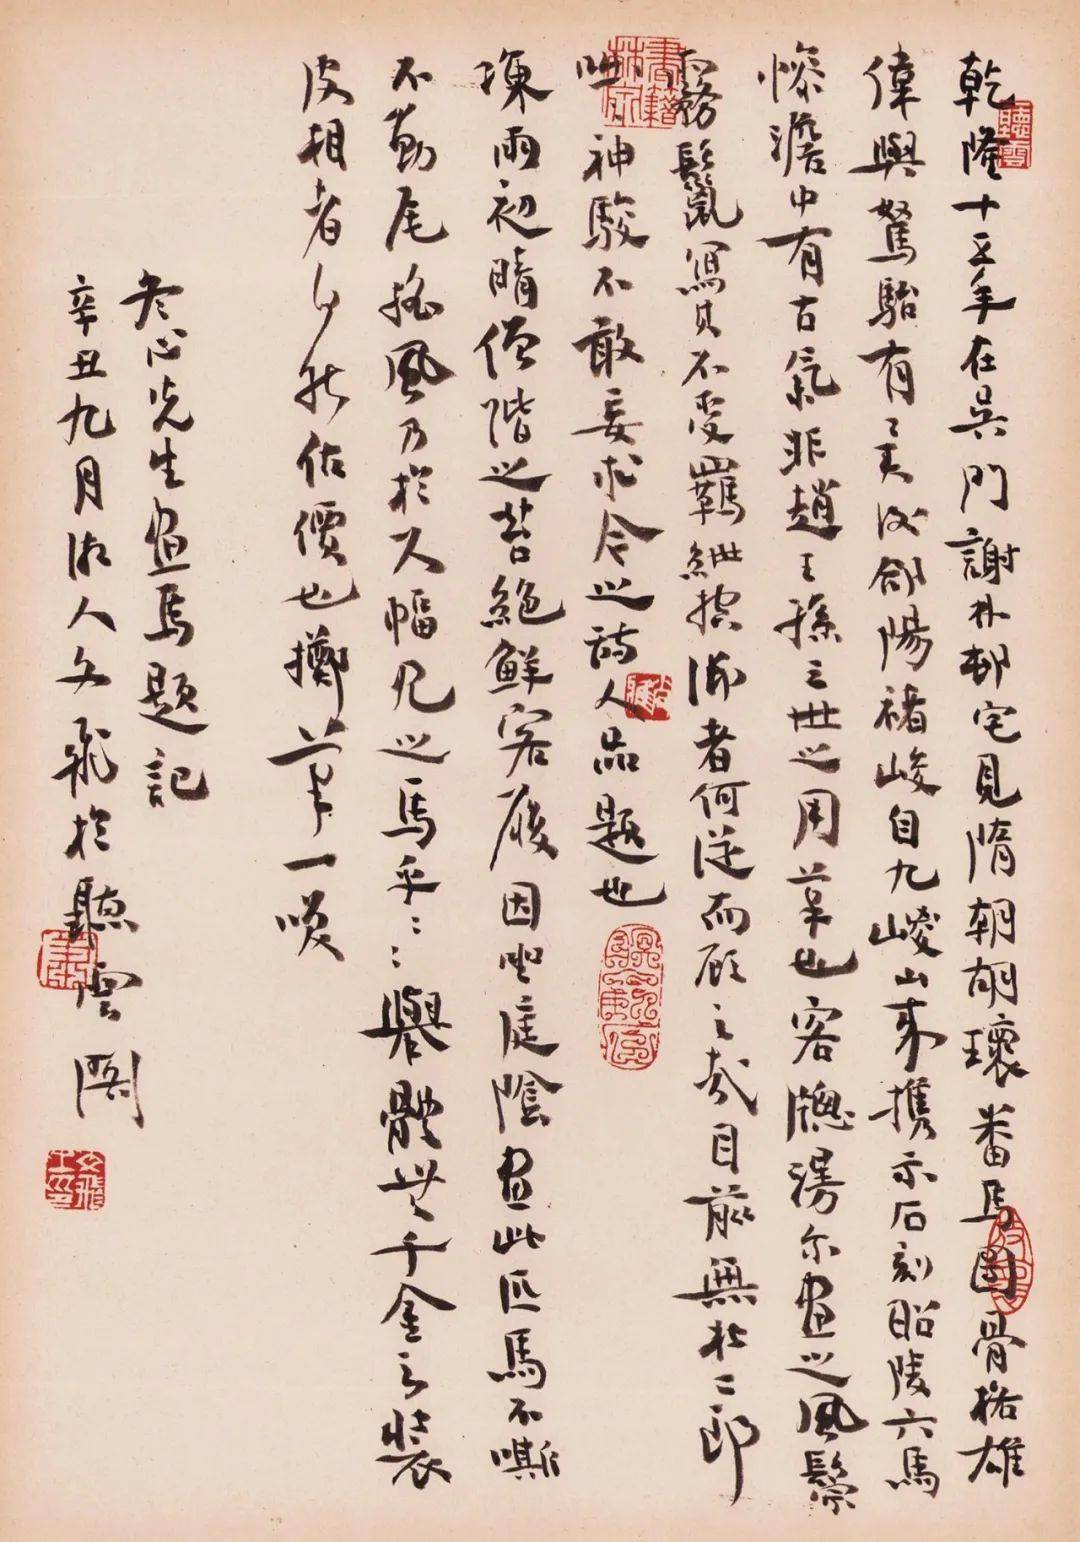 乾隆十五年在吳門謝林邨宅見隋朝胡瓌番馬圖骨格雄
偉與駑駘有異後郃陽褚峻自九嵕山來攜示石刻昭陵六馬
慘澹中有古氣非趙王孫之世之用筆也客窗漫尔畫之風鬃
霧鬣寫其不受羈紲控御者何從而顧之哉目前無杜二郎
咄神駿不敢妄求今之詩人品題也
涷雨初晴僧階之苔絕鮮客履因坐庭陰畫此匹馬不嘶
不動尾搖風乃於尺幅見之馬乎馬乎舉體無千金之裝
皮相者勿能估價也擲筆一嘆
冬心先生畫馬題記
辛丑九月湘人文飛於聽雲閣
聽雲